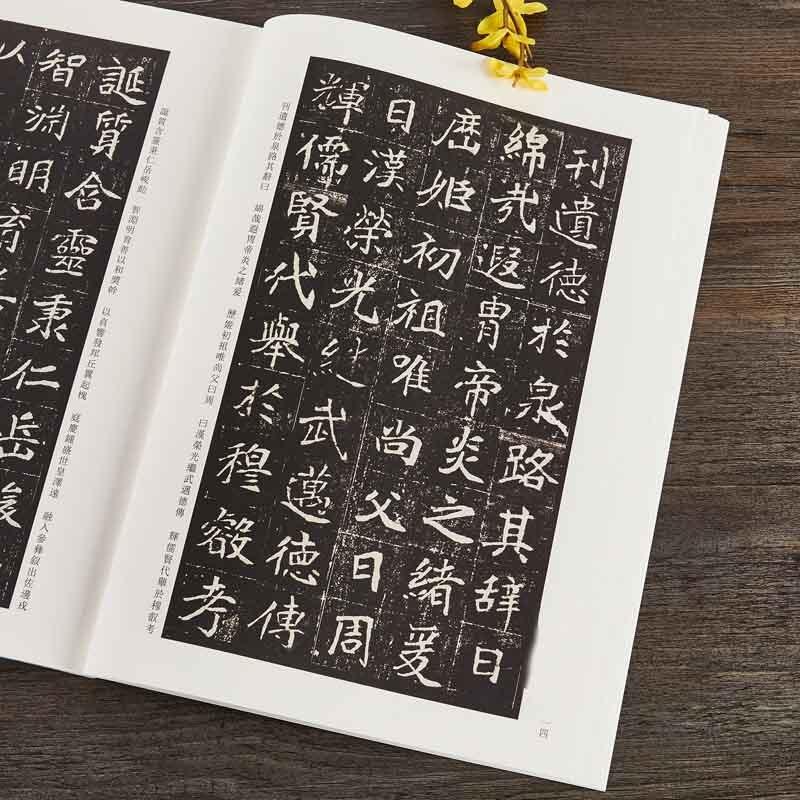 刊遺德於泉路其辭曰
綿哉遐胄帝炎之緒爰
厯姬初祖唯尚父曰周
曰漢榮光継武邁德傳
輝儒賢代舉於穆叡考
刊遺德於泉路其辭曰 綿哉遐胄帝炎之緒爰 歷姬初祖唯尚父曰周 曰漢榮光繼武邁德傳 輝儒賢代舉於穆叡考
一四
誕質含靈秉仁岳
智淵明育
以
誕質含靈秉仁岳峻飴 智淵明育善以和奬幹 以貞響發邦丘翼起槐 庭慶鍾盛世皇澤遠 融入參彝叙出佐邊戎